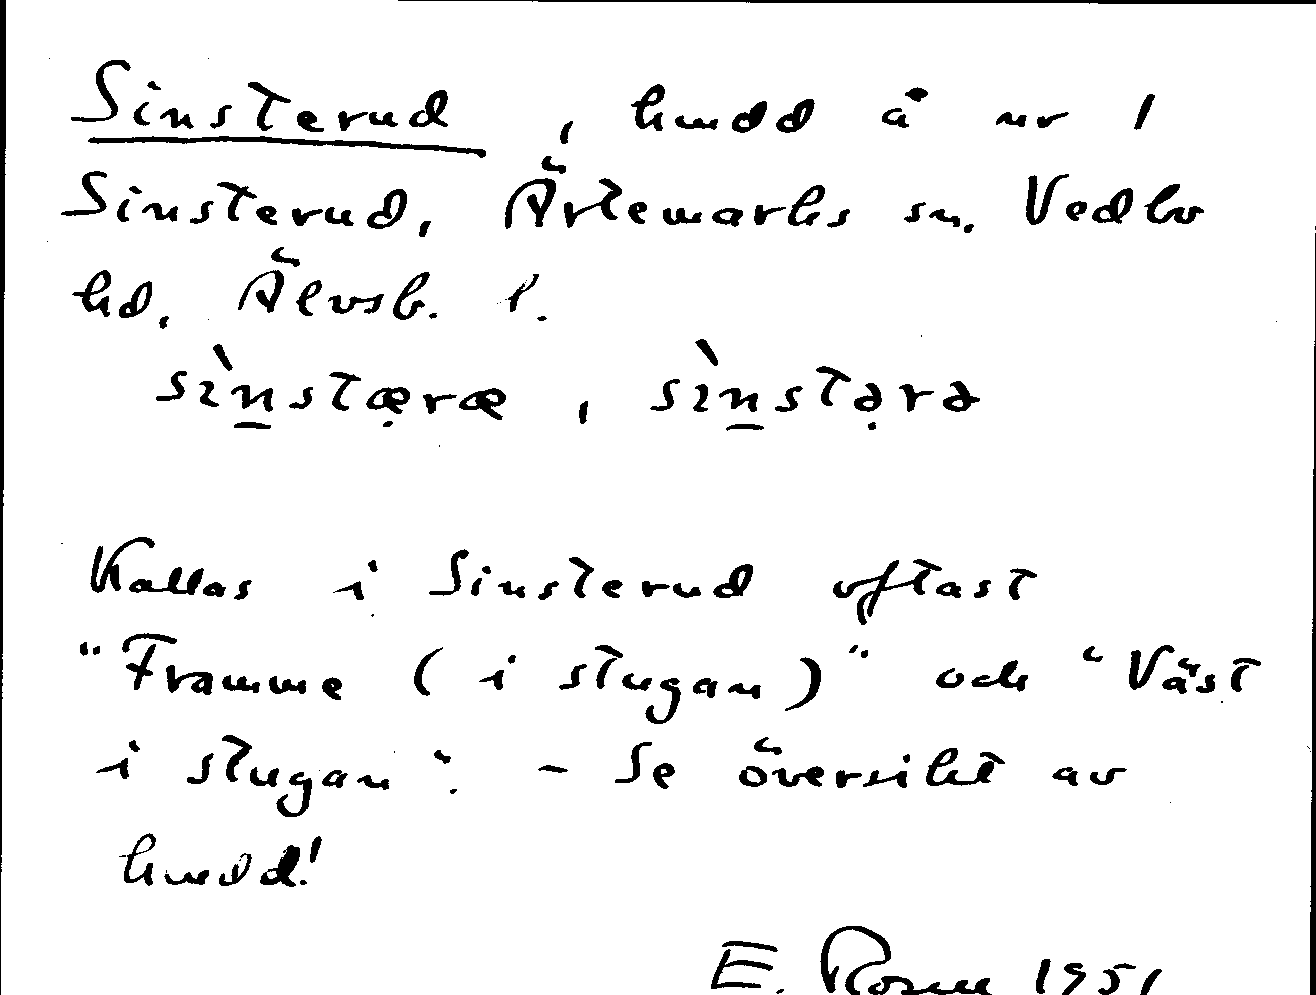 Sinsterud, hmdd å nr 1
Sinsterud, Ärtemarks sn. Vedbo
hd, Älvsb. l.
sìn̲stæ̣ræ, sìn̲stə̣rə
Kallas i Sinsterud oftast
"Framme (i stugan)" och "Väst
i stugan". - Se översikt av
hmdd!
E. Rosén 1951